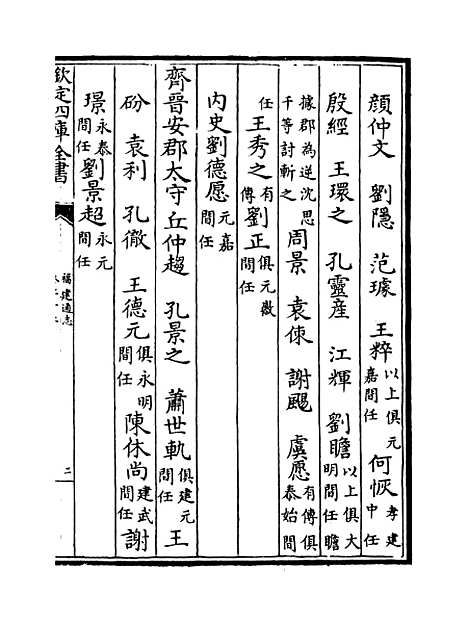 顔仲文　劉隱　范璩　王粹以上俱元嘉間任　何恢孝建中任
殷經　王環之　孔靈産　江輝　劉瞻以上俱大明間任瞻
據郡為逆沈思千等討斬之　周景　袁倲　謝颺　虞愿有傳俱泰始間
任王秀之有傳劉正俱元徽間任
内史劉德愿元嘉間任
齊晉安郡太守丘仲趨　孔景之　蕭世軌俱建元間任　王
砏　袁利　孔徹　王德元俱永明間任　陳休尚建武間任　謝
璟永泰間任劉景超永元間任
欽定四庫全書
福建通志
二